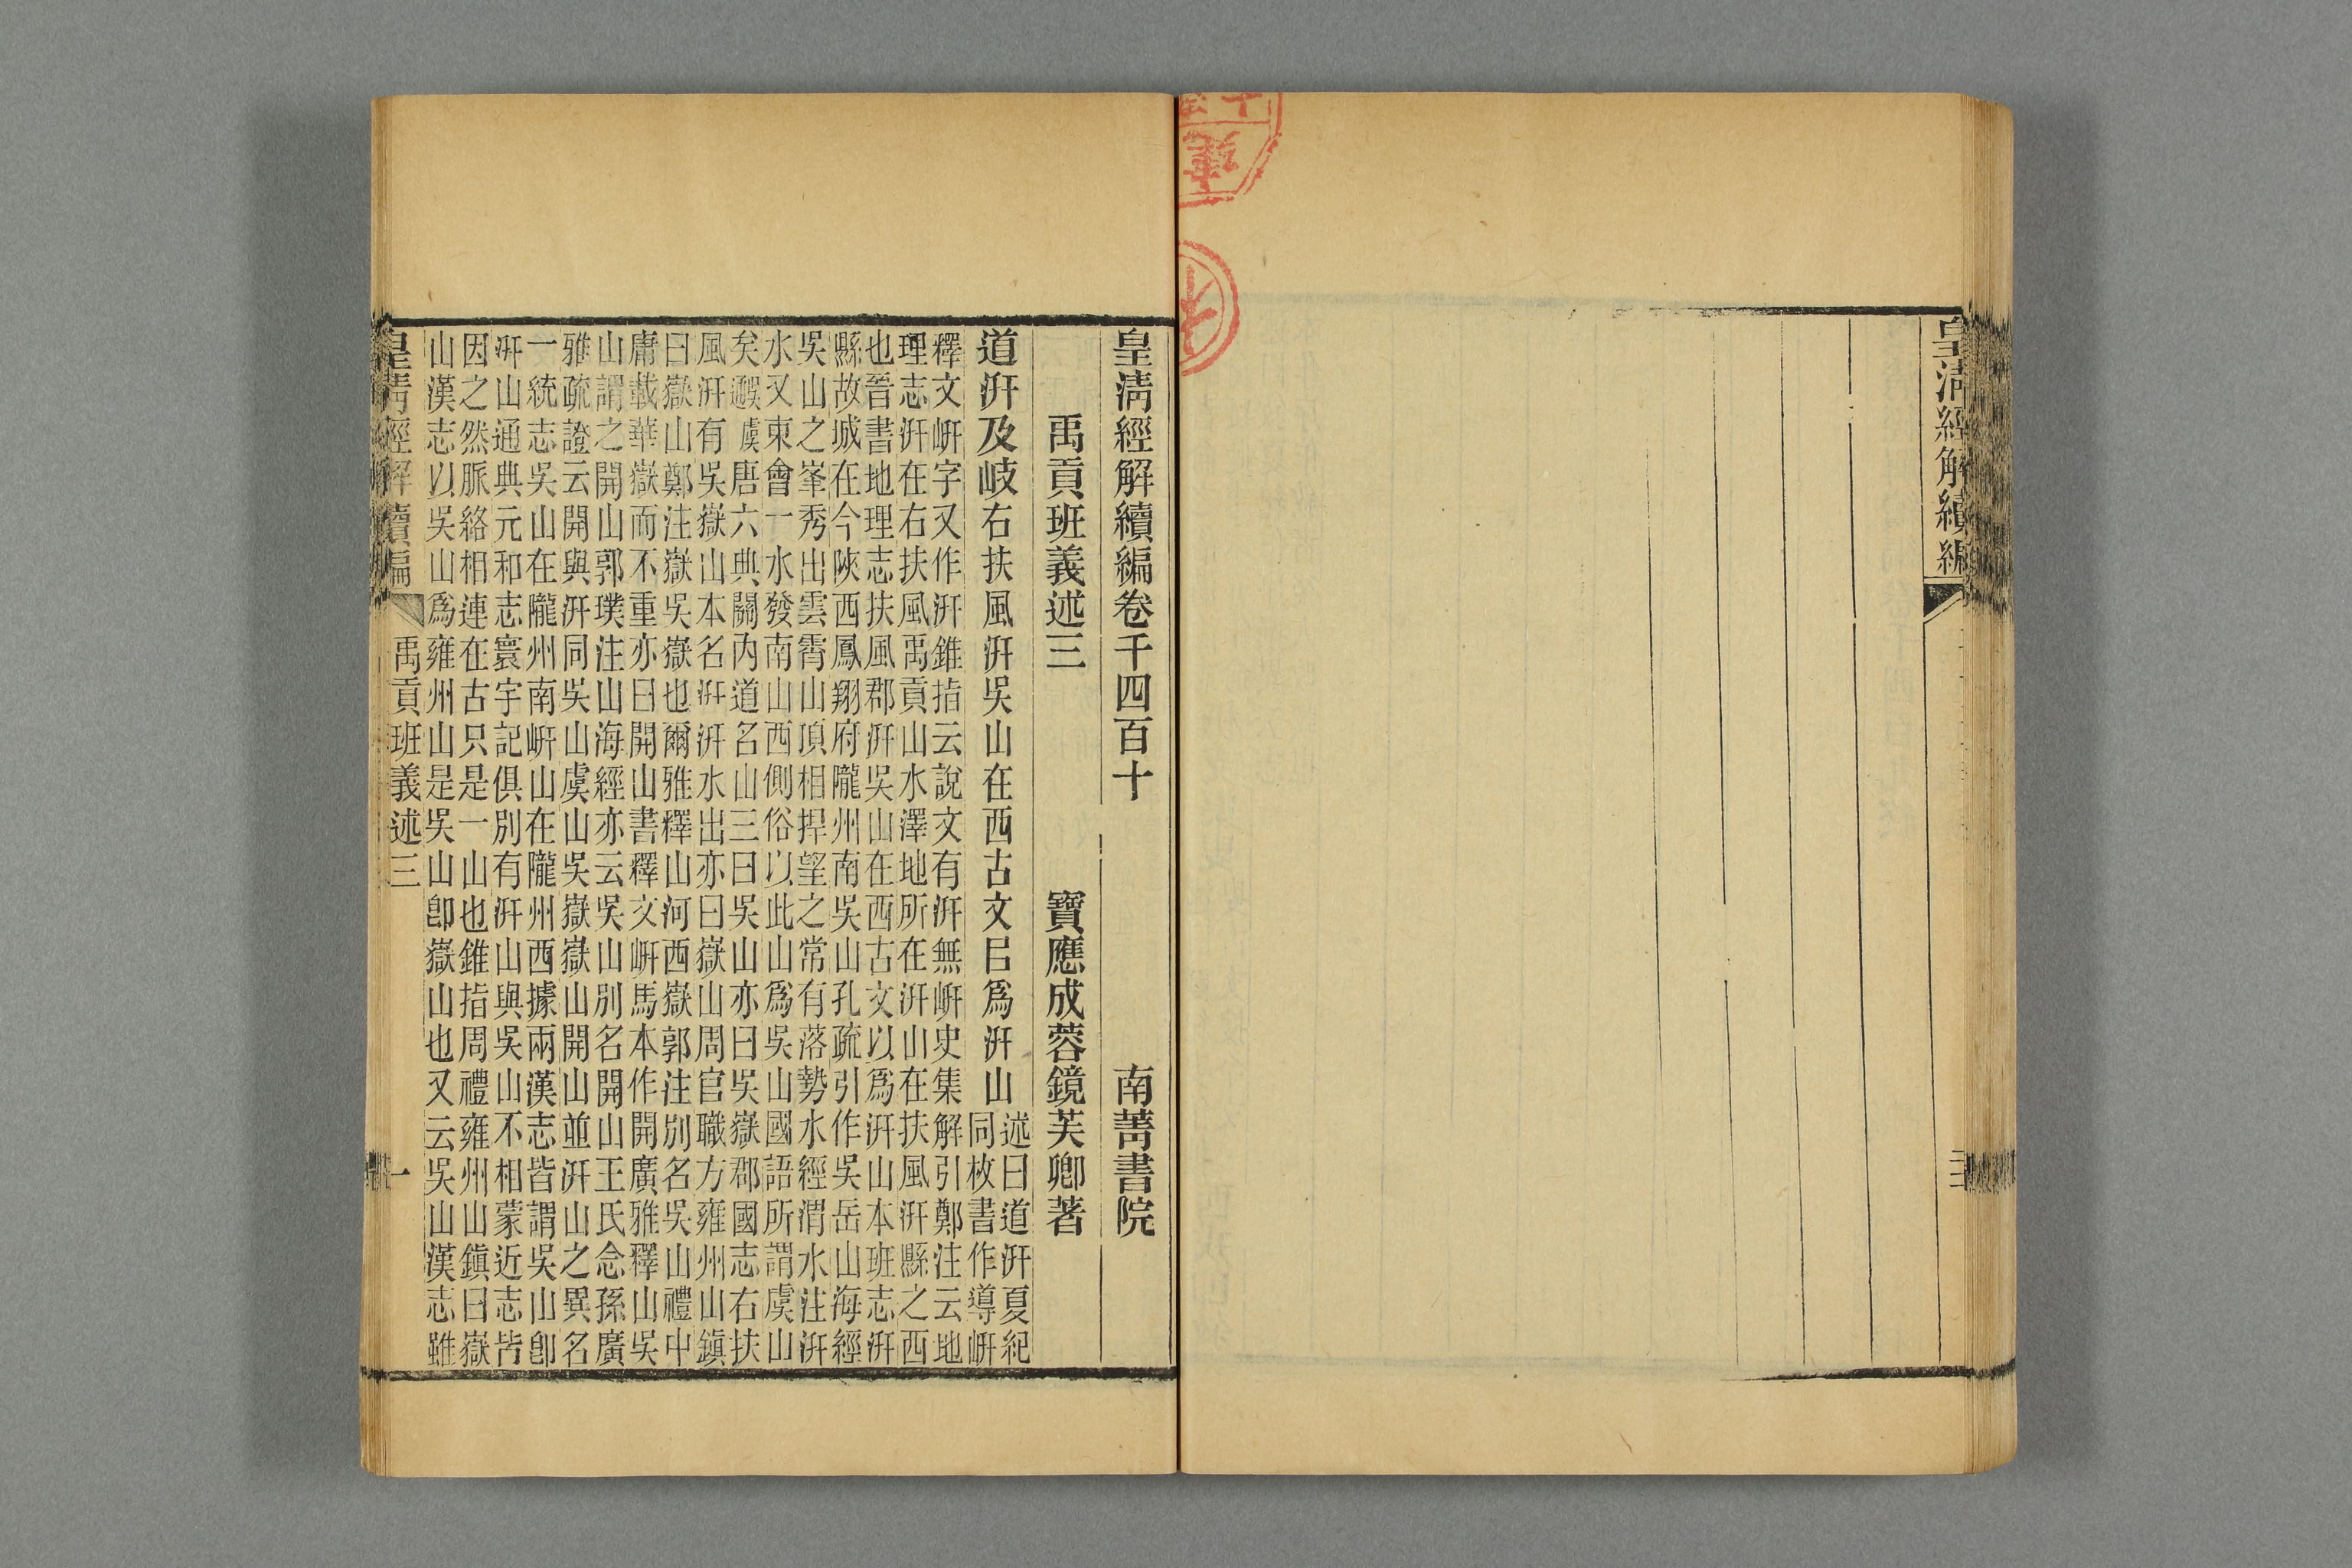 皇清經解續編
皇清經解續編卷千四百十
南菁書院
禹貢班義述三
寶應成蓉鏡芙卿著
道汧及岐右扶風汧吳山在西古文㠯爲汧山
述曰道汧夏紀
同枚書作導岍
釋文岍字又作汧錐指云說文有汧無岍史集解引鄭注云地
理志汧在右扶風禹貢山水澤地所在汧山在扶風汧縣之西
也晉書地理志扶風郡汧吳山在西古文以爲汧山本班志汧
縣故城在今陝西鳳翔府隴州南吳山孔疏引作吳岳山海經
吳山之峯秀出雲霄山頂相捍望之常有落勢水經渭水注汧
水又東會一水發南山西側俗以此山爲吳山國語所謂虞山
矣 虞唐六典關內道名山三曰吳山亦曰吳嶽郡國志右扶
風汧有吳嶽山本名汧汧水出亦曰嶽山周官職方雍州山鎮
曰嶽山鄭注嶽吳嶽也爾雅釋山河西嶽郭注別名吳山禮中
庸載華嶽而不重亦曰開山書釋文岍馬本作開廣雅釋山吳
山謂之開山郭璞注山海經亦云吳山別名開山王氏念孫廣
雅疏證云開與汧同吳山虞山吳嶽嶽山開山並汧山之異名
一統志吳山在隴州南岍山在隴州西據兩漢志皆謂吳山卽
汧山通典元和志寰宇記俱別有汧山與吳山不相蒙近志皆
因之然脈絡相連在古只是一山也錐指周禮雍州山鎮曰嶽
山漢志以吳山爲雍州山是吳山卽嶽山也又云吳山漢志雖
皇清經解續編
禹貢班義述三
一